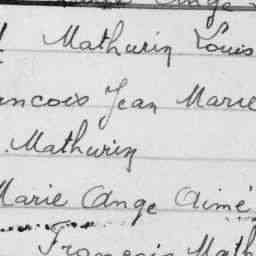 Mathurin Louis
ancois Jean Marie
Mathurin
Marie Ange Aimé
François Math